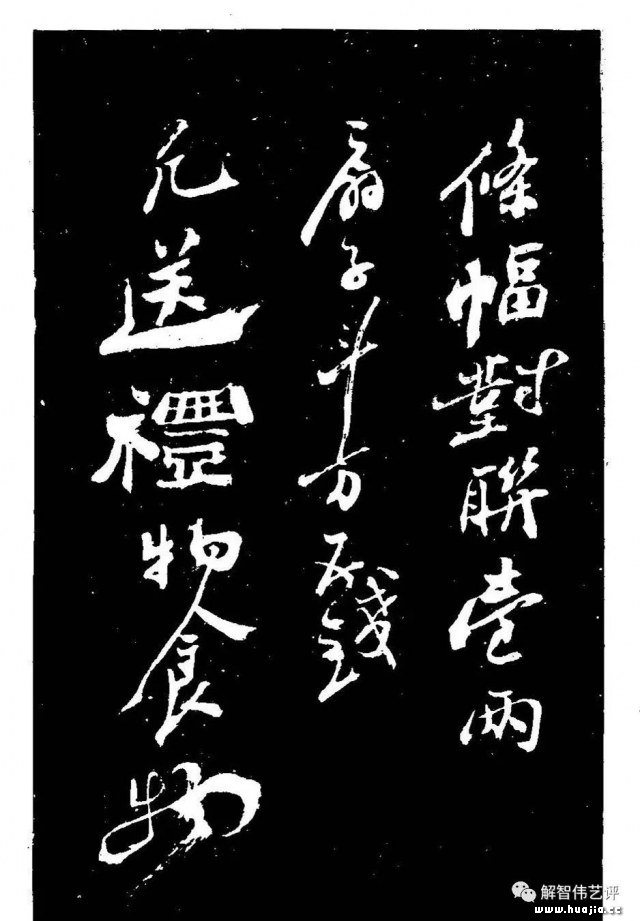 條幅對聯壹兩
扇子斗方五錢
凡送禮物食物
解智伟艺评
www.huajia.cc